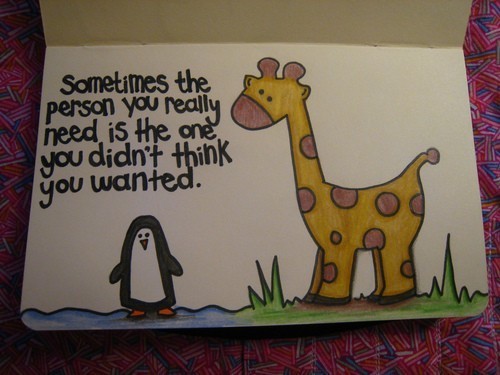 Sometimes the
person you really
need is the one
you didn't think
you wanted.